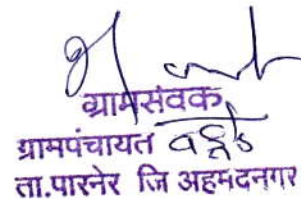 ग्रामसेवक
ग्रामपंचायत
ता.पारनेर जि अहमदनगर